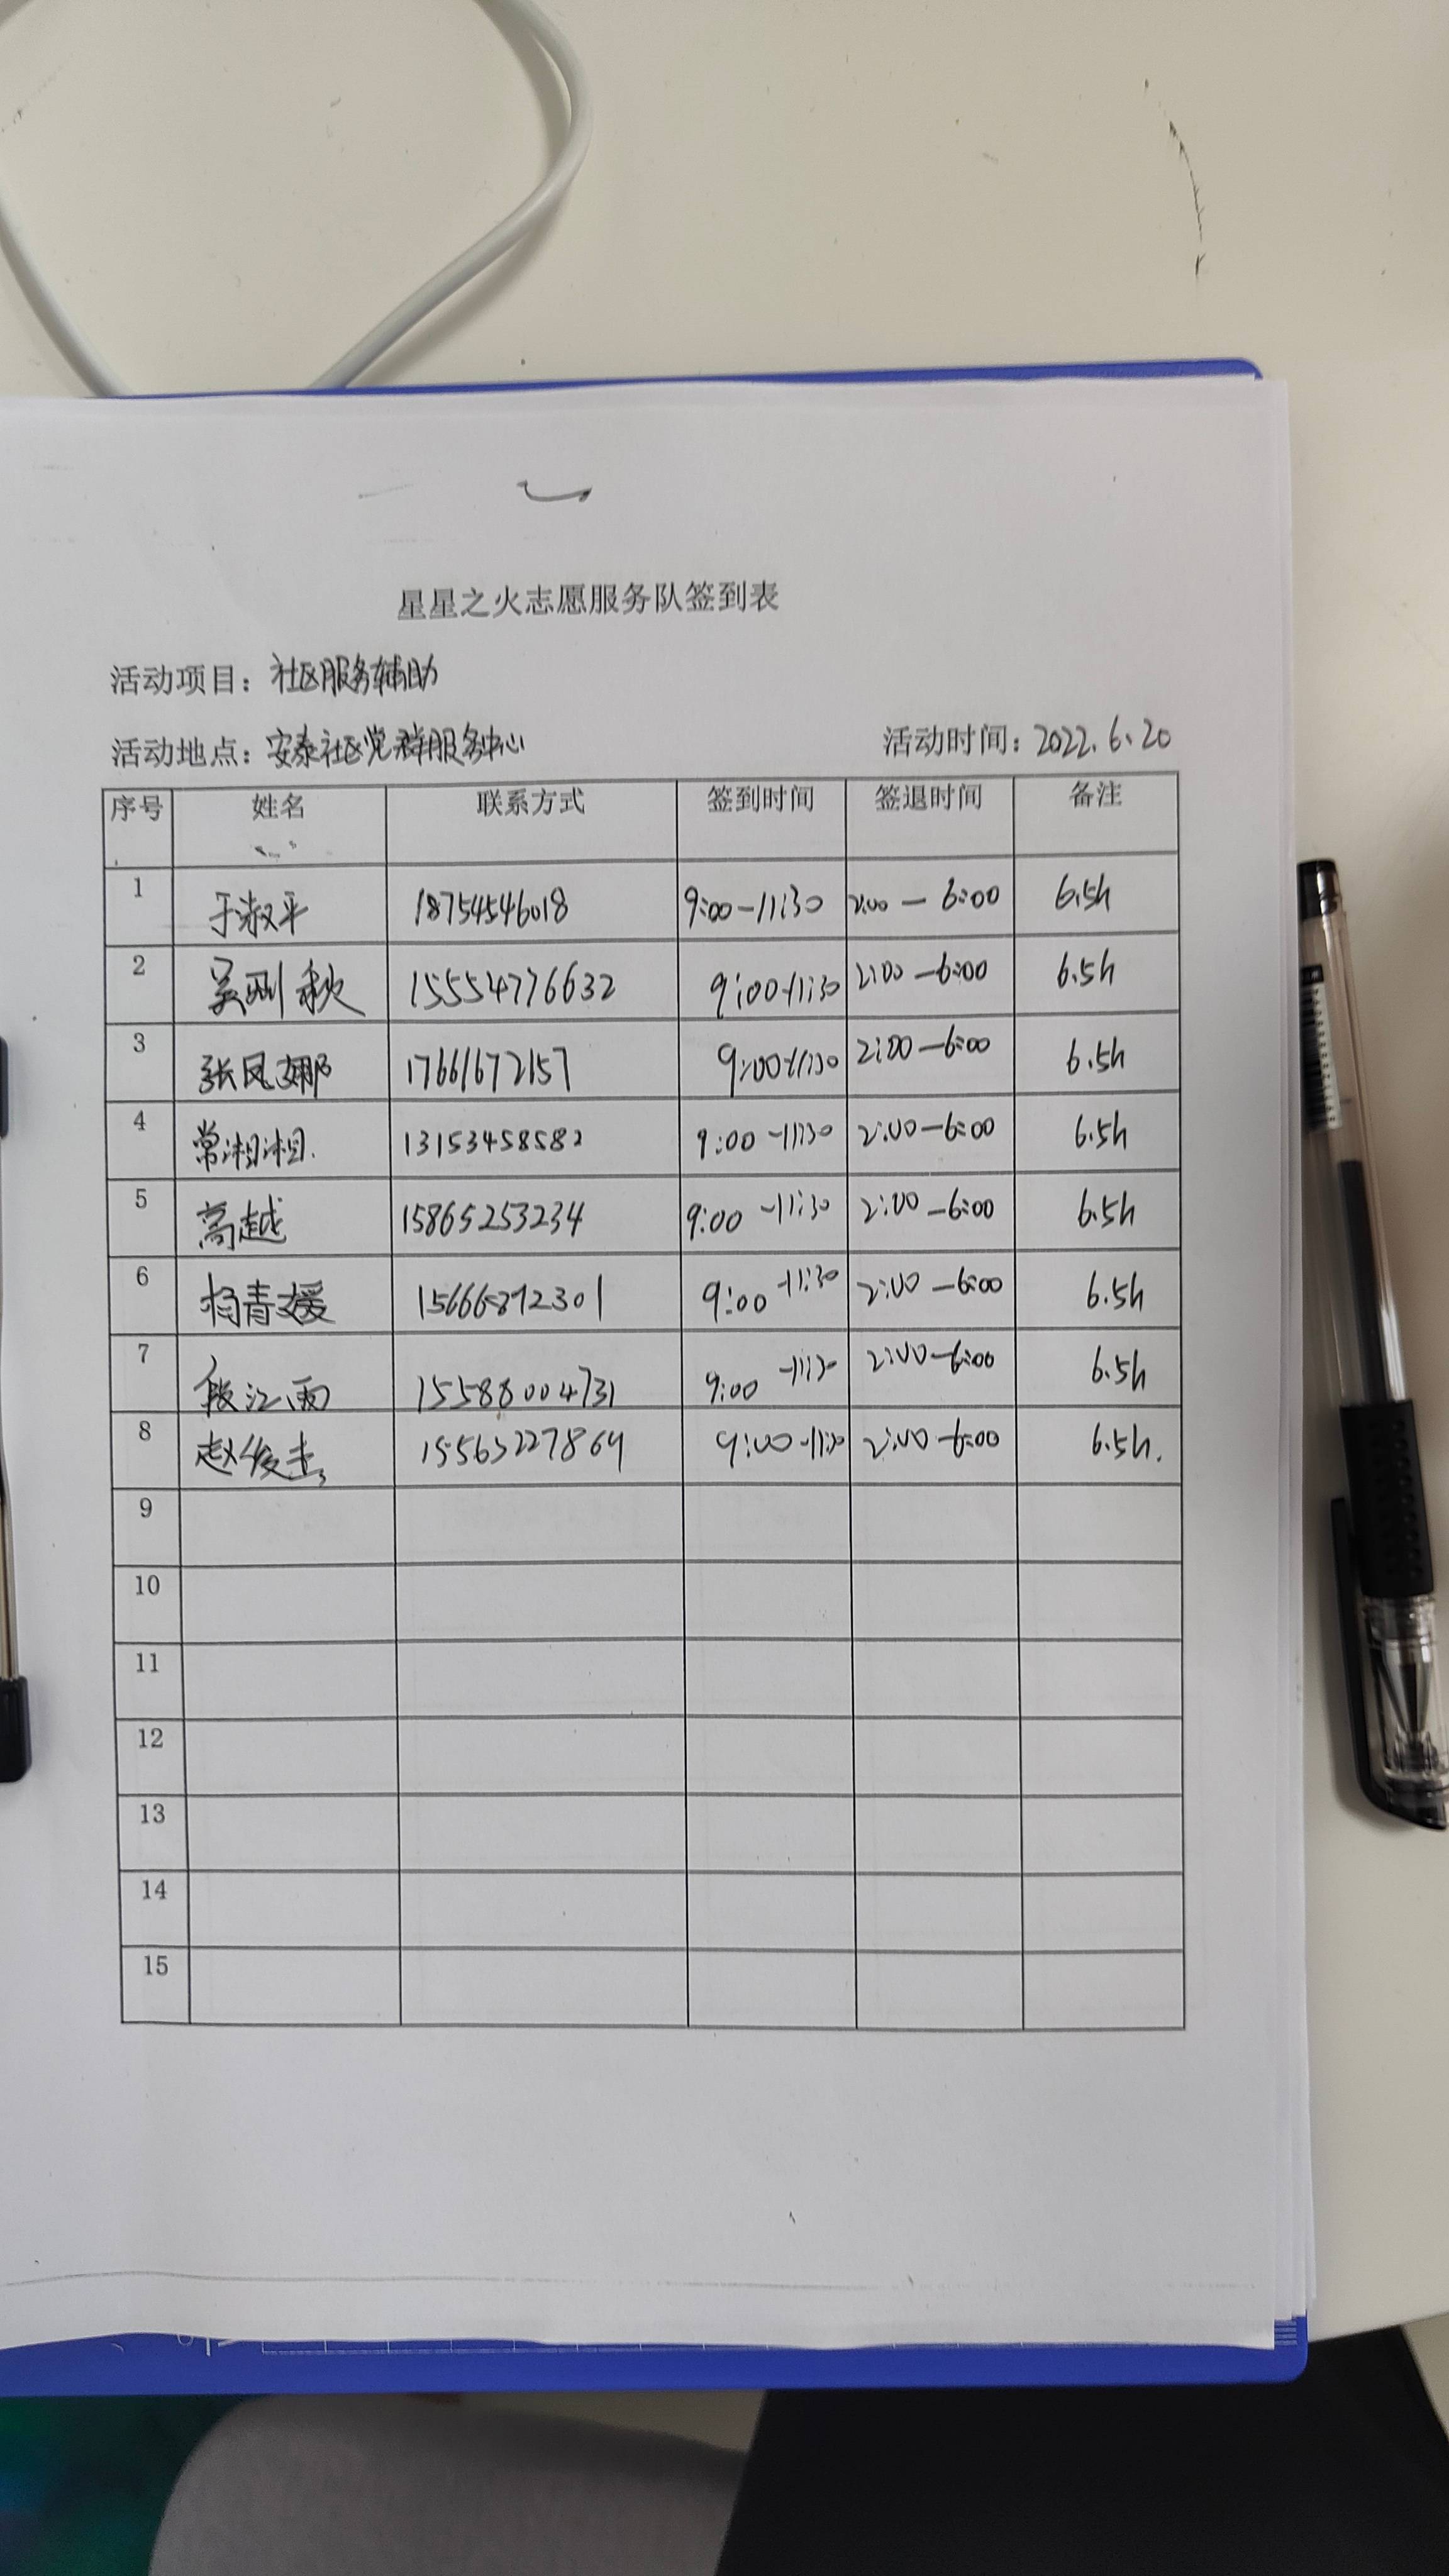 星星之火志愿服务队签到表
活动项目：社区服务辅助
活动地点：安泰社区党群服务中心 活动时间：2022.6.20
序号 姓名 联系方式 签到时间 签退时间 备注
1 于淑平 18754546018 9:00-11:30 2:00-6:00 6.5h
2 吴刚秋 15554776632 9:00-11:30 2:00-6:00 6.5h
3 张凤娜 17661672157 9:00-11:30 2:00-6:00 6.5h
4 常湘湘. 13153458582 9:00-11:30 2:00-6:00 6.5h
5 高越 15865253234 9:00-11:30 2:00-6:00 6.5h
6 杨青媛 15666892301 9:00-11:30 2:00-6:00 6.5h
7 段江雨 15588004731 9:00-11:30 2:00-6:00 6.5h
8 赵俊 15563227864 9:00-11:30 2:00-6:00 6.5h.
9
10
11
12
13
14
15